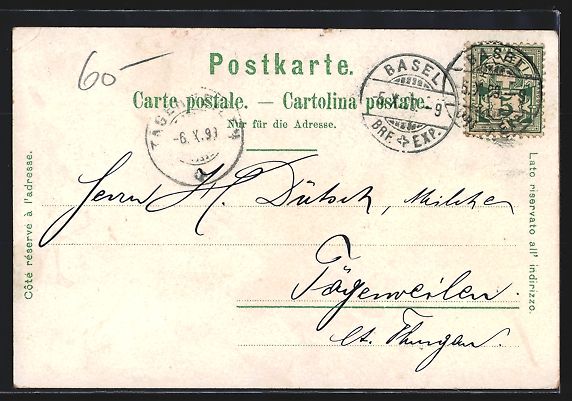 60-
Postkarte.
Carte postale. — Cartolina postale.
Nur für die Adresse.
BASEL
5.X. -9
BRF. EXP.
BASEL
5
-6.X.9
Côté réservé à l'adresse.
Lato riservato all' indirizzo.
Herrn H. Dütsch,
Tägerweilen
Ct. Thurgau.